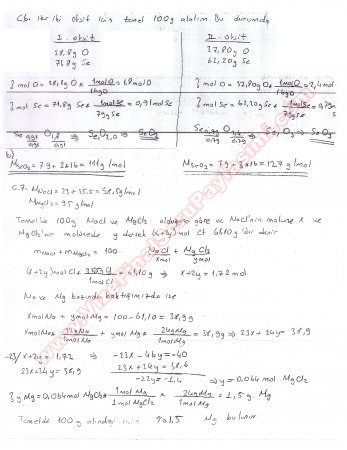 C6. Her iki oksit için temel 100g alalım. Bu durumda
I. oksit
28,8g O
71,8g Se
II. oksit
37,80g O
62,20g Se
? mol O = 28,8g O * 1molO/16gO = 1,8molO
? mol O = 37,80g O * 1molO/16gO = 2,4mol
? mol Se = 71,8g Se * 1molSe/79gSe = 0,91molSe
? mol Se = 62,20g Se * 1molSe/79gSe = 0,79m
Se 0,91/0,91 O 1,8/0,91 ⇒ Se1O2,0 ⇒ SeO2
Se 0,79/0,79 O 2,4/0,79 ⇒ Se1O3 ⇒ SeO3
b)
MSeO2 = 79 + 2*16 = 111g/mol
MSeO3 = 79 + 3*16 = 127g/mol
C.7. MNaCl = 23 + 35,5 = 58,5g/mol
MMgCl2 = 95g/mol
Temelde 100g NaCl ve MgCl2 olduğuna göre ve NaCl'nin molüne x ve
MgCl2'nin molüne de y dersek (x+2y) mol Cl 61,10g'dır denir
mNaCl + mMgCl2 = 100
NaCl + MgCl2
xmol ymol
(x+2y)molCl * 35,5g/1molCl = 61,10g ⇒ x+2y = 1,72mol
Na ve Mg bazında baktığımızda ise
xmolNa + ymolMg = 100-61,10 = 38,9g
xmolNa * 23gNa/1molNa + ymolMg * 24gMg/1molMg = 38,9g ⇒ 23x + 24y = 38,9
-23/ x+2y = 1,72 ⇒ -23x - 46y = -40
23x+24y = 38,9 23x + 24y = 38,6
-22y = -1,4 ⇒ y = 0,064 mol MgCl2
? g Mg = 0,064mol MgCl2 * 1mol Mg/1mol MgCl2 * 24gMg/1molMg = 1,5g Mg
Temelde 100g alındığı için %1,5 Mg bulunur